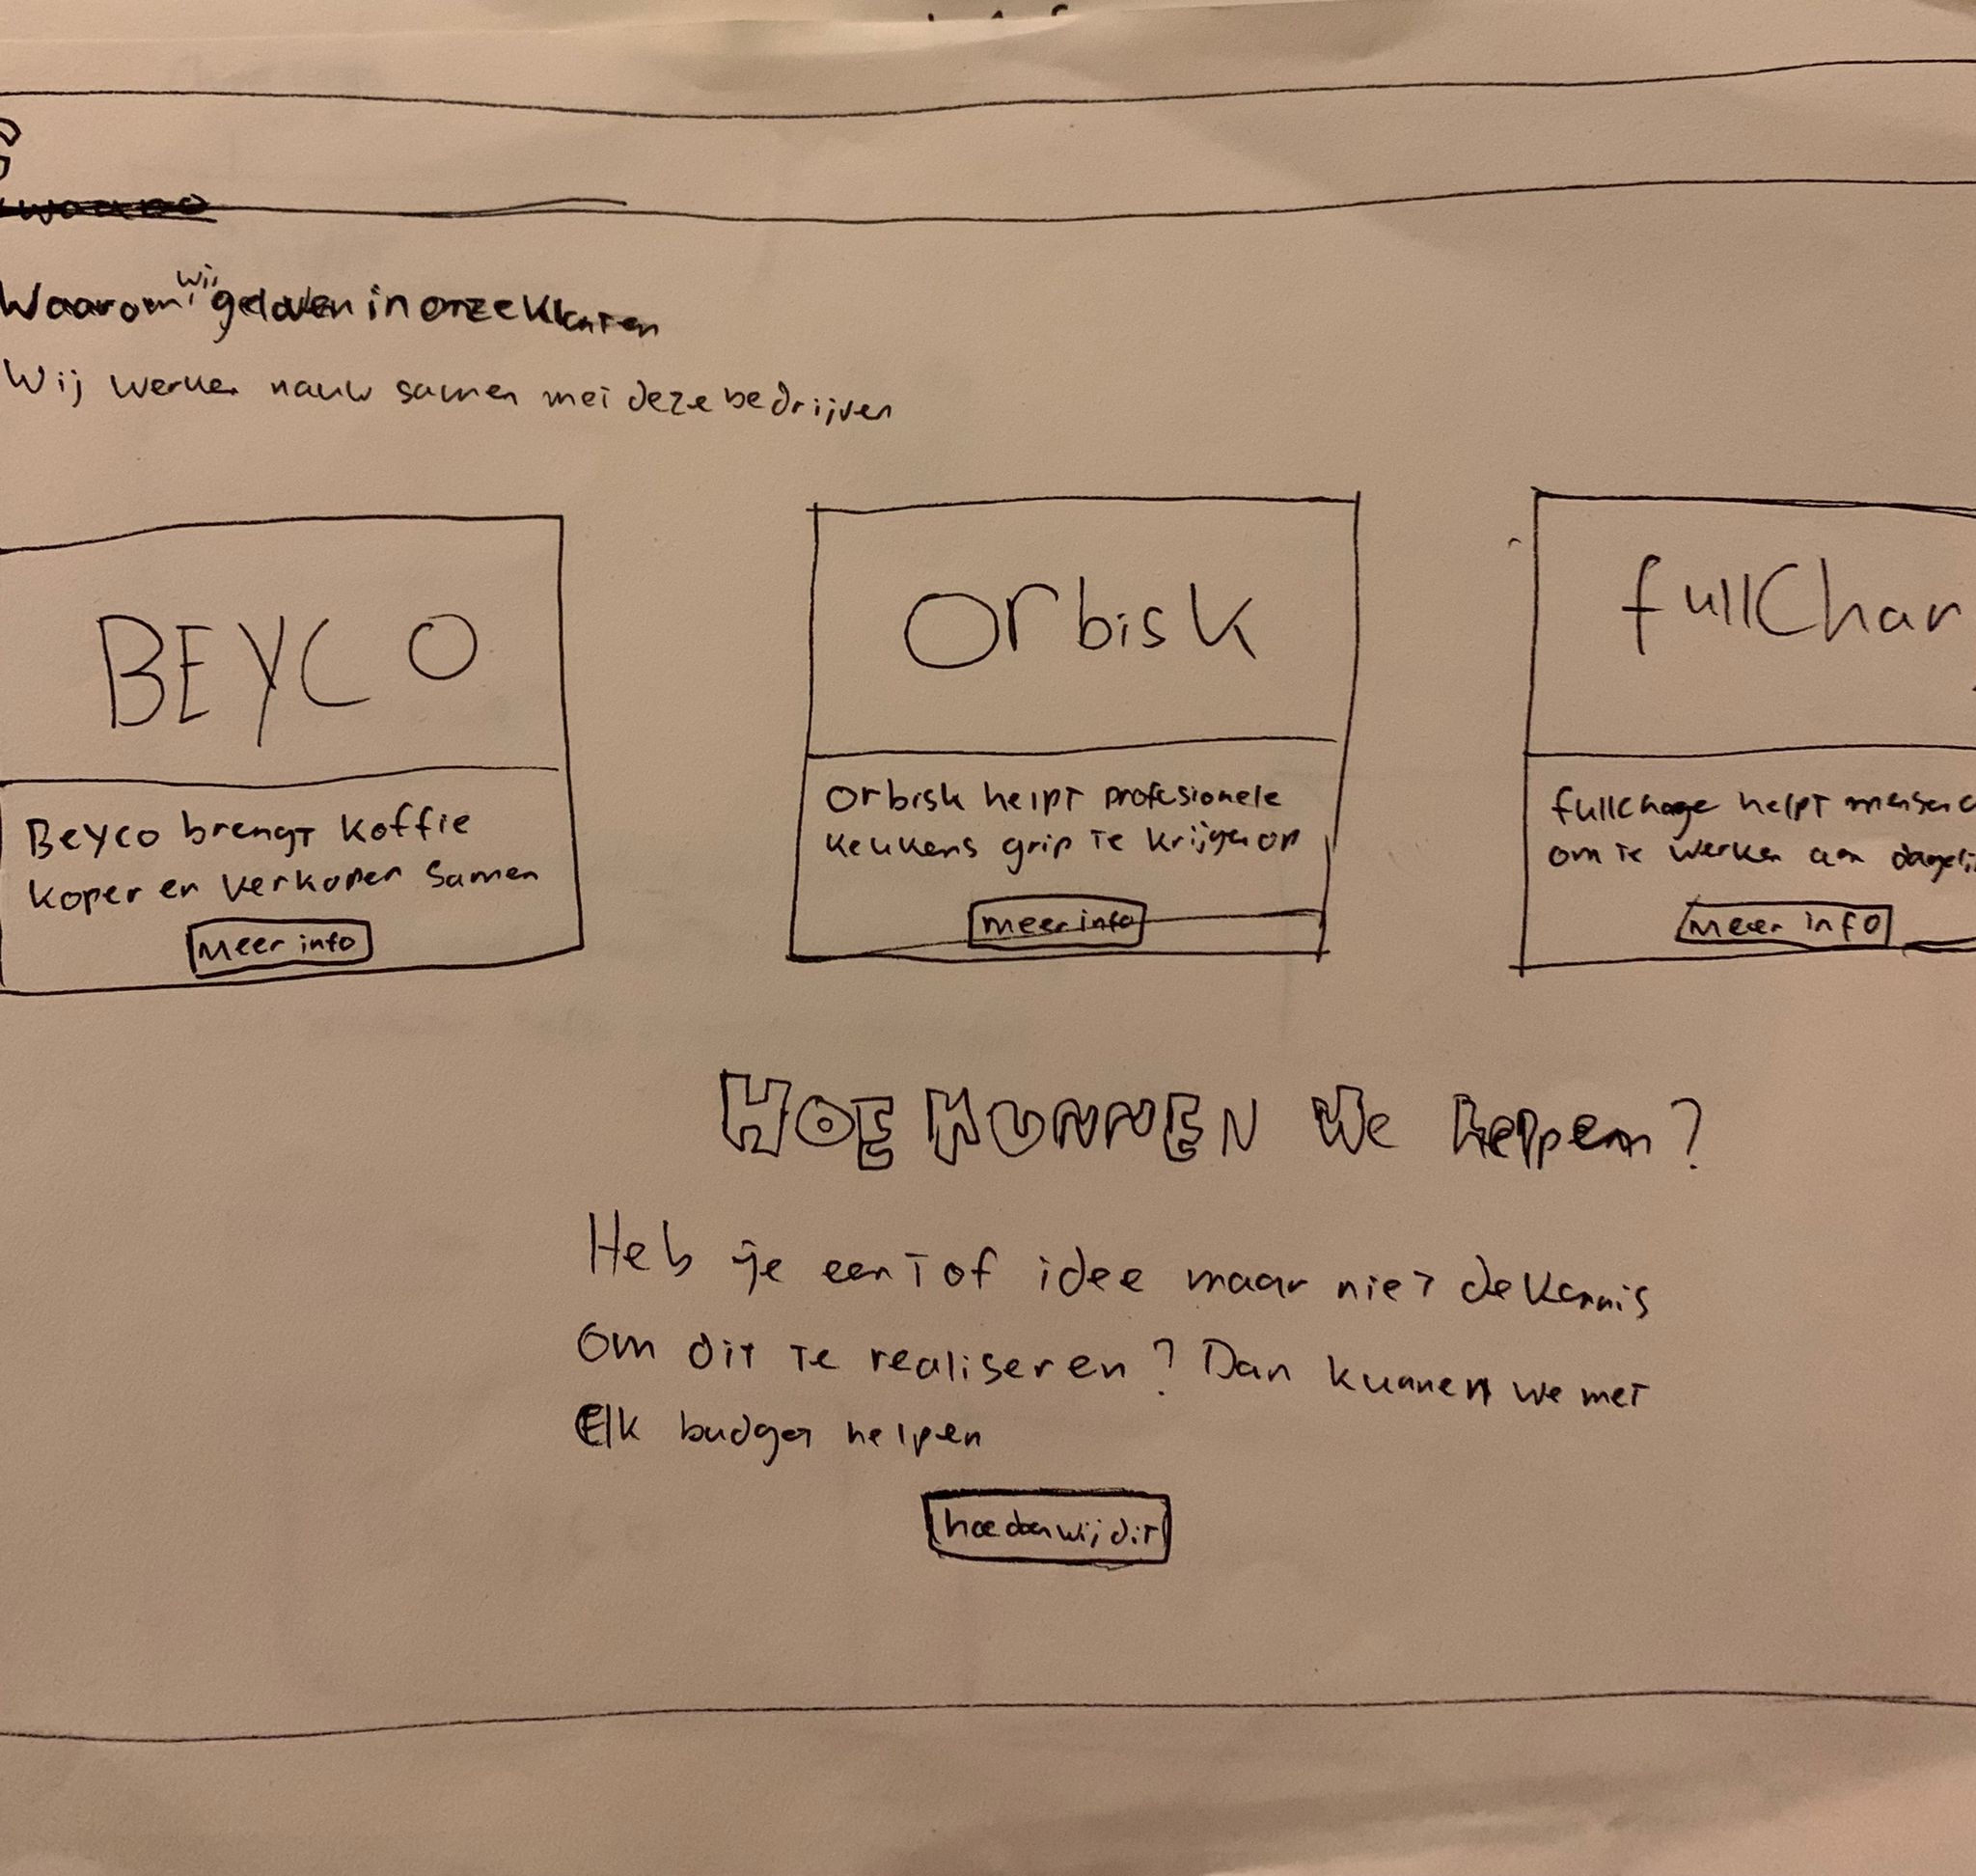 Waarom wij geloven in onze klanten
Wij werken nauw samen met deze bedrijven
BEYCO
Beyco brengt koffie
koper en verkoper samen
Meer info
orbisk
Orbisk helpt profesionele
keukens grip te krijgen op
meer info
fullChar
fullcharge helpt mensen
om te werken aan dageli
meer info
HOE KUNNEN We helpen?
Heb je een tof idee maar niet de kennis
om dit te realiseren? Dan kunnen we met
Elk budget helpen
hoe doen wij dit